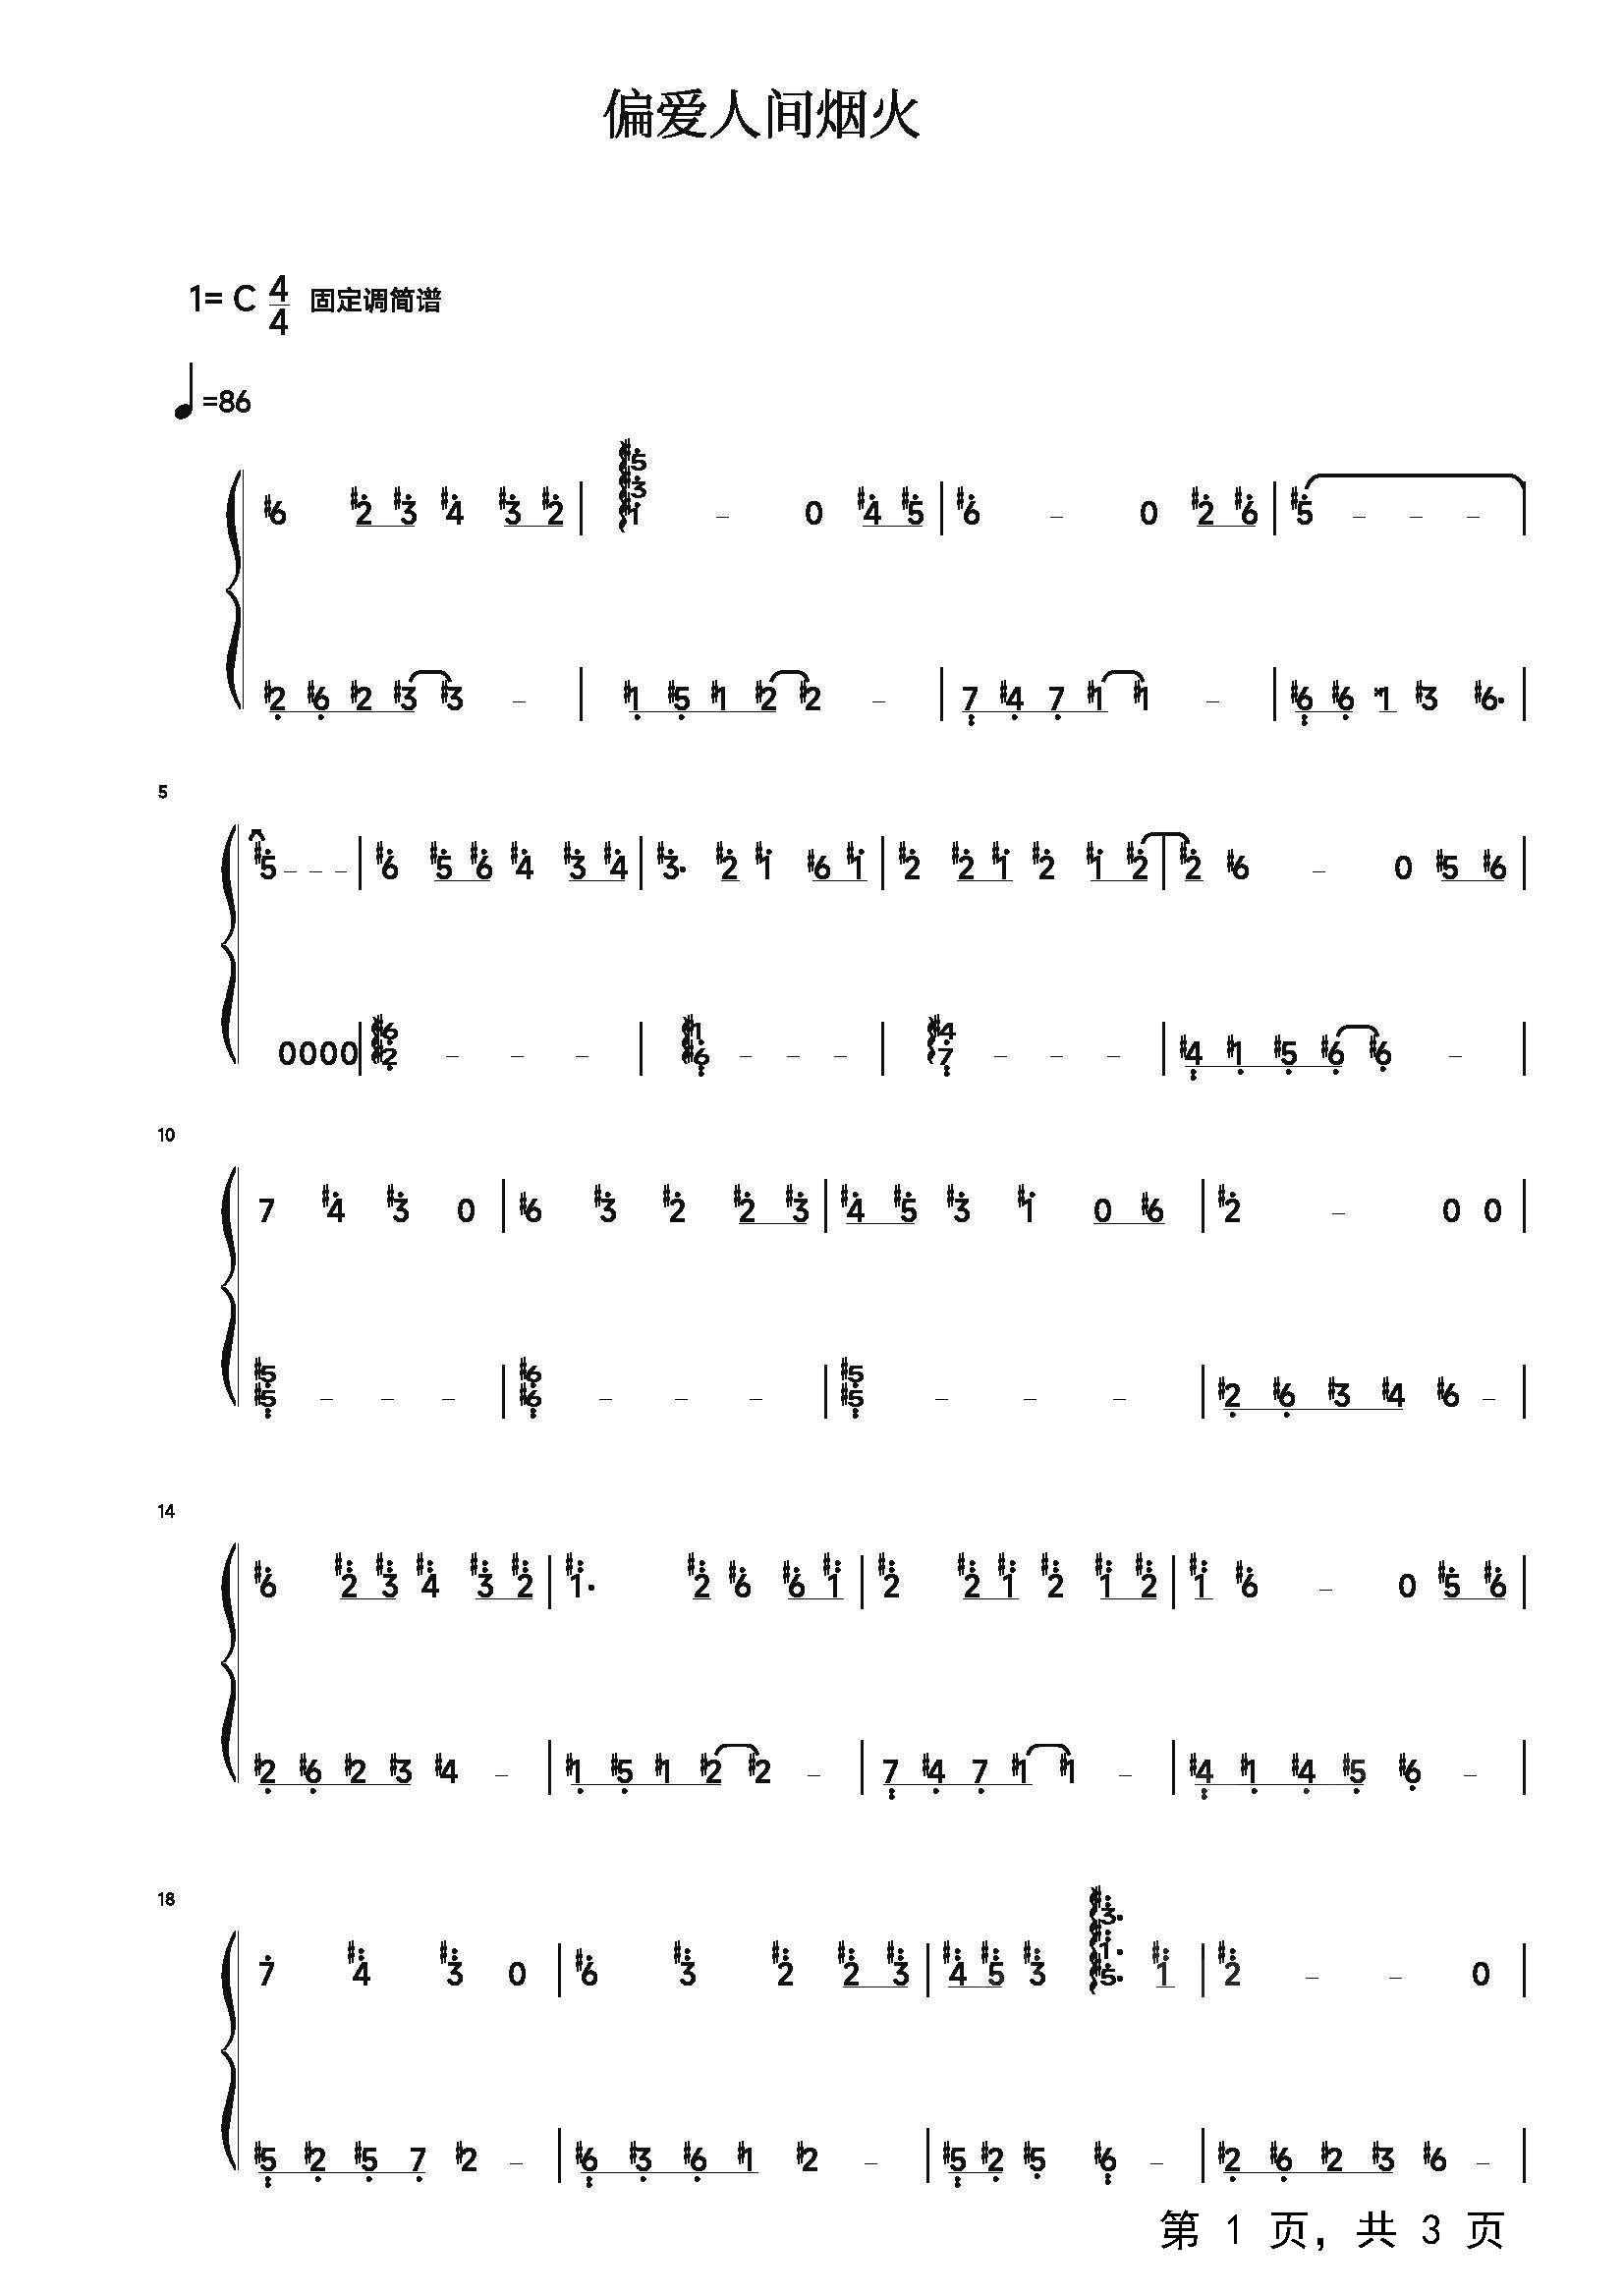 偏爱人间烟火
1= C 4/4 固定调简谱
♩=86
#6 #2 #3 #4 #3 #2 | #5 #3 #1 – 0 #4 #5 | #6 – 0 #2 #6 | #5 – – – |
#2 #6 #2 #3 #3 – | #1 #5 #1 #2 #2 – | 7 #4 7 #1 #1 – | #6 #6 ×1 #3 #6. |
5
#5 – – – | #6 #5 #6 #4 #3 #4 | #3. #2 #1 #6 #1 | #2 #2 #1 #2 #1 #2 | #2 #6 – 0 #5 #6 |
0 0 0 0 | #6 #2 – – – | #1 #6 – – – | #4 7 – – – | #4 #1 #5 #6 #6 – |
10
7 #4 #3 0 | #6 #3 #2 #2 #3 | #4 #5 #3 #1 0 #6 | #2 – 0 0 |
#5 #5 – – – | #6 #6 – – – | #5 #5 – – – | #2 #6 #3 #4 #6 – |
14
#6 #2 #3 #4 #3 #2 | #1. #2 #6 #6 #1 | #2 #2 #1 #2 #1 #2 | #1 #6 – 0 #5 #6 |
#2 #6 #2 #3 #4 – | #1 #5 #1 #2 #2 – | 7 #4 7 #1 #1 – | #4 #1 #4 #5 #6 – |
18
7 #4 #3 0 | #6 #3 #2 #2 #3 | #4 #5 #3 #3. #1. #5. #1 | #2 – – 0 |
#5 #2 #5 7 #2 – | #6 #3 #6 #1 #2 – | #5 #2 #5 #6 – | #2 #6 #2 #3 #6 – |
第 1 页，共 3 页